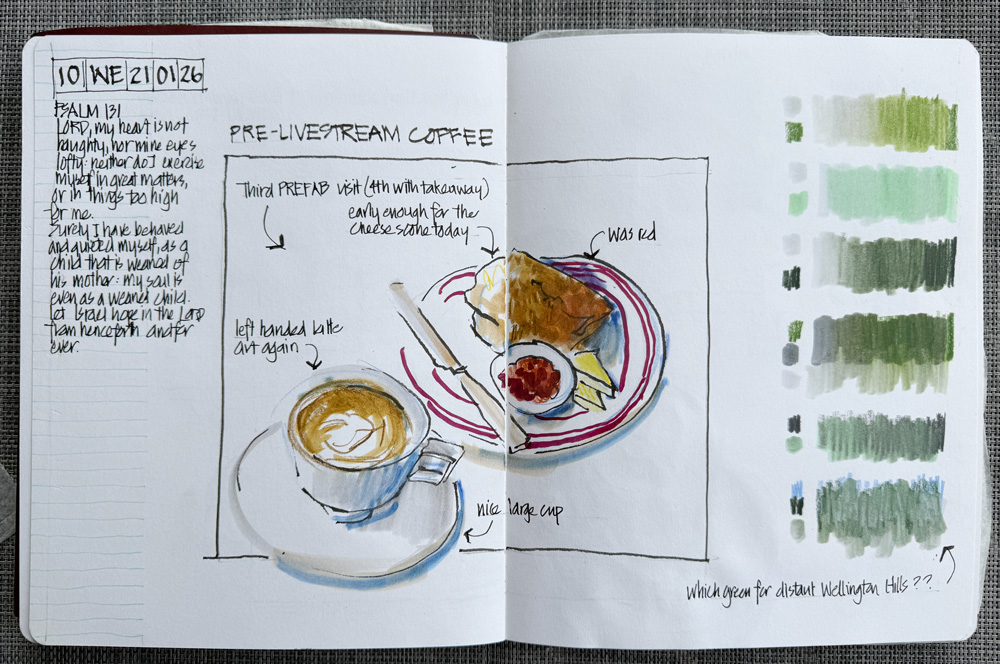 10 WE 21 01 26
PSALM 131
LORD, my heart is not
haughty, nor mine eyes
lofty: neither do I exercise
myself in great matters,
or in things too high
for me.
Surely I have behaved
and quieted myself, as a
child that is weaned of
his mother: my soul is
even as a weaned child.
Let Israel hope in the LORD
from henceforth and for
ever.
PRE-LIVESTREAM COFFEE
Third PREFAB visit (4th with takeaway)
early enough for the
cheese scone today
was red
left handed latte
art again
nice large cup
Which green for distant Wellington Hills??